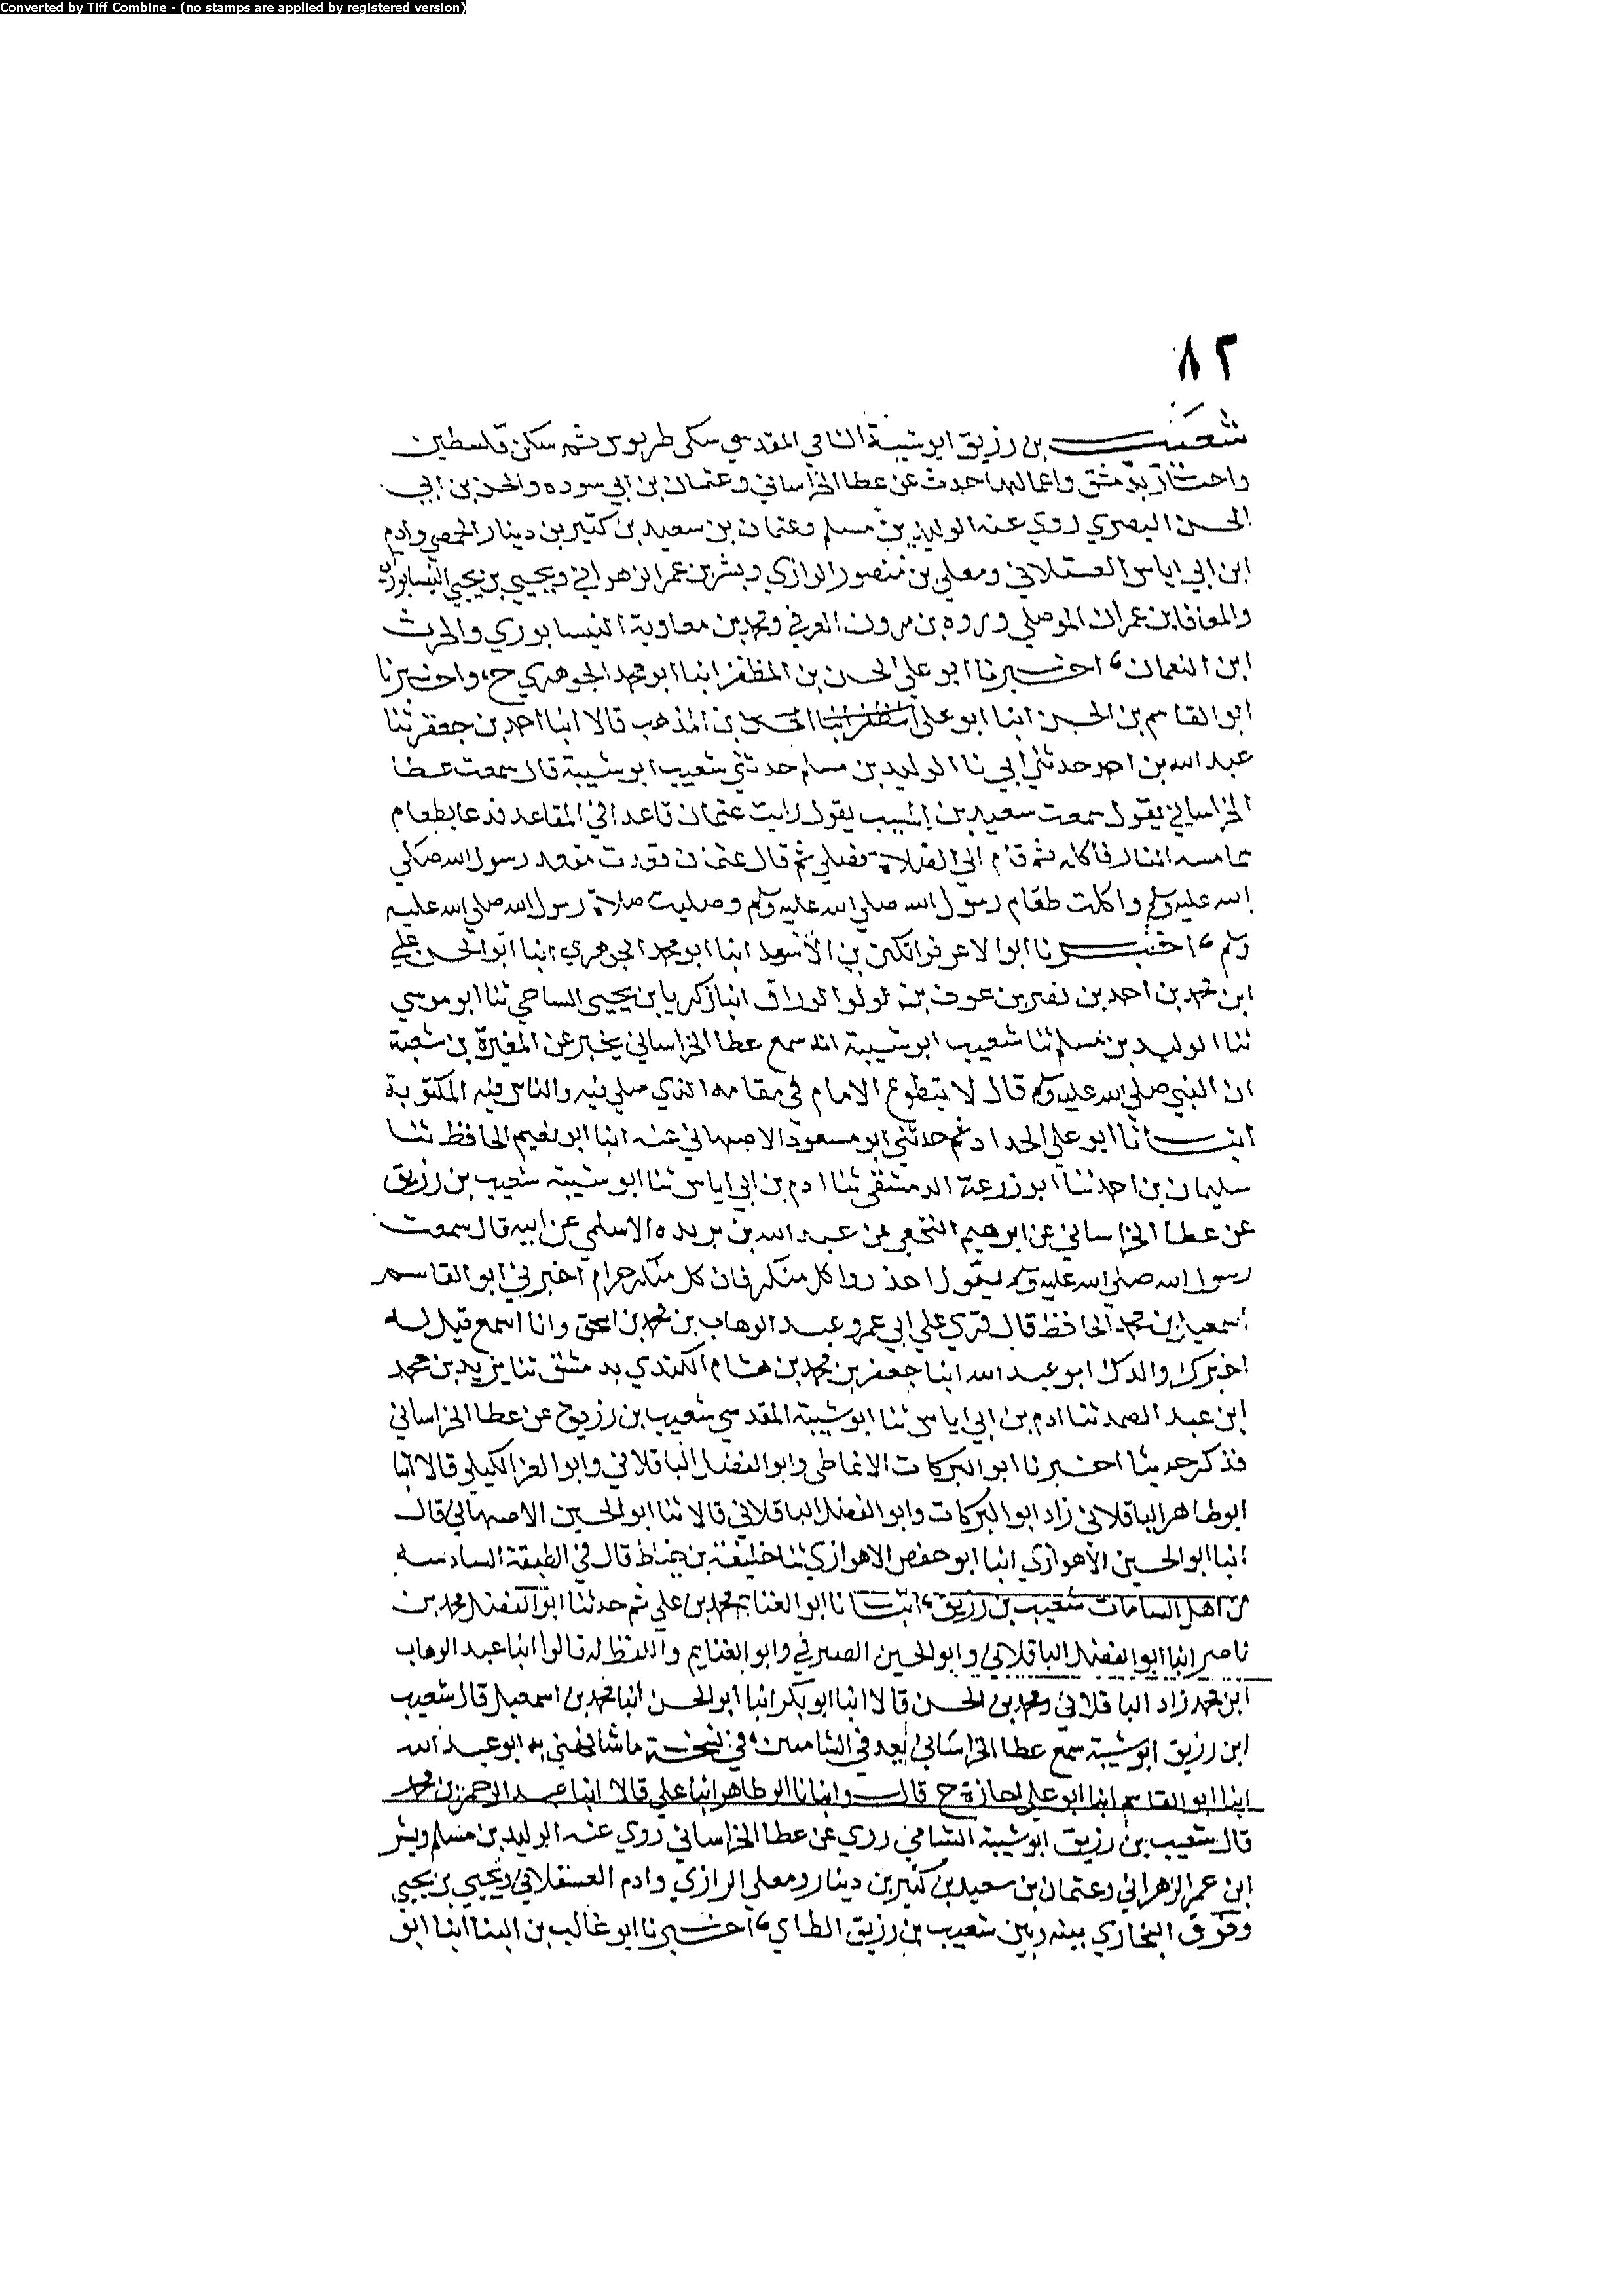 Converted by Tiff Combine - (no stamps are applied by registered version)
٨٢
شعيب بن رزيق ابو شيبة الشامي المقدسي سكن طرسوس ثم سكن فلسطين
واجتاز بدمشق واعمالها حدث عن عطا الخراساني وعثمان بن ابي سوده والحسن بن ابي
الحسن البصري روي عنه الوليد بن مسلم وعثمان بن سعيد بن كثير بن دينار الحمصي وادم
ابن ابي اياس العسقلاني ومعلي بن منصور الرازي وبشر بن عمر الزهراني ويحيي بن يحيي النيسابوريان
والمعافا بن عمران الموصلي و بن العرفي ومحمد بن معاوية النيسابوري والحرث
ابن النعمان اخبرنا ابو علي الحسن بن المظفر انبا ابو محمد الجوهري ح واخبرنا
ابو القاسم بن الحصين انبا ابو علي الحسن بن المذهب قالا انبا احمد بن جعفر ثنا
عبد الله بن احمد حدثني ابي نا الوليد بن مسلم حدثني شعيب ابو شيبة قال سمعت عطا
الخراساني يقول سمعت سعيد بن المسيب يقول رايت عثمان قاعدا في المقاعد فدعا بطعام
مما مسه النار فاكله ثم قام الي الصلاة فصلي ثم قال عثمان قعدت مقعد رسول الله صلي
الله عليه وسلم واكلت طعام رسول الله صلي الله عليه وسلم وصليت صلاة رسول الله صلي الله عليه
وسلم اخبرنا ابو الاعز قراتكين بن الاسعد انبا ابو محمد الجوهري انبا ابو الحسن علي
ابن محمد بن احمد بن نصير بن عوف بن لولوا الوراق انبا زكريا بن يحيى الساجي ثنا ابو موسي
ثنا الوليد بن مسلم ثنا شعيب ابو شيبة انه سمع عطا الخراساني يخبر عن المغيرة بن شعبة
ان النبي صلي الله عليه وسلم قال لا يتطوع الامام في مقامه الذي صلي فيه والناس فيه المكتوبة
انبانا ابو علي الحداد ثم حدثني ابو مسعود الاصبهاني عنه انبا ابو نعيم الحافظ ثنا
سليمان بن احمد ثنا ابو زرعة الدمشقي ثنا ادم بن ابي اياس ثنا ابو شيبة شعيب بن رزيق
عن عطا الخراساني عن ابرهيم النخعي عن عبد الله بن بريده الاسلمي عن ابيه قال سمعت
رسول الله صلي الله عليه وسلم يقول احذروا كل مسكر فان كل مسكر حرام اخبرني ابو القاسم
اسمعيل بن محمد الحافظ قال قري علي ابي عمرو عبد الوهاب بن محمد بن اسحق وانا اسمع قيل له
اخبرك والدك ابو عبد الله انبا جعفر بن محمد بن هشام الكندي بدمشق ثنا يزيد بن محمد
ابن عبد الصمد ثنا ادم بن ابي اياس ثنا ابو شيبة المقدسي شعيب بن رزيق عن عطا الخراساني
فذكر حديثا اخبرنا ابو البركات الانماطي وابو الفضل الباقلاني وابو العز الكيلي قالا انبا
ابو طاهر الباقلاني زاد ابو البركات وابو الفضل الباقلاني قالا ثنا ابو الحسين الاصبهاني قال
انبا ابو الحسين الاهوازي انبا ابو حفص الاهوازي ثنا خليفة بن خياط قال في الطبقة السادسة
من اهل الشامات شعيب بن رزيق انبانا ابو الغنايم محمد بن علي ثم حدثنا ابو الفضل محمد بن
ناصر انبا ابو الفضل الباقلاني وابو الحسين الصيرفي وابو الغنايم واللفظ له قالوا انبا عبد الوهاب
ابن محمد زاد الباقلاني ومحمد بن الحسن قالا انبا ابو بكر انبا ابو الحسن انبا محمد بن اسمعيل قال شعيب
ابن رزيق ابو شيبة سمع عطا الخراساني يعد في الشاميين في نسخة ما شافهني به ابو عبد الله
انبا ابو القاسم انبا ابو علي اجازة ح قال وانبانا ابو طاهر انبا علي قالا انبا عبد الرحمن بن محمد
قال شعيب بن رزيق ابو شيبة الشامي روي عن عطا الخراساني روي عنه الوليد بن مسلم وبشر
ابن عمر الزهراني وعثمان بن سعيد بن كثير بن دينار ومعلي الرازي وادم العسقلاني ويحيي بن يحيي
وفرق البخاري بينه وبين شعيب بن رزيق الطاي اخبرنا ابو غالب بن البنا انبا ابو